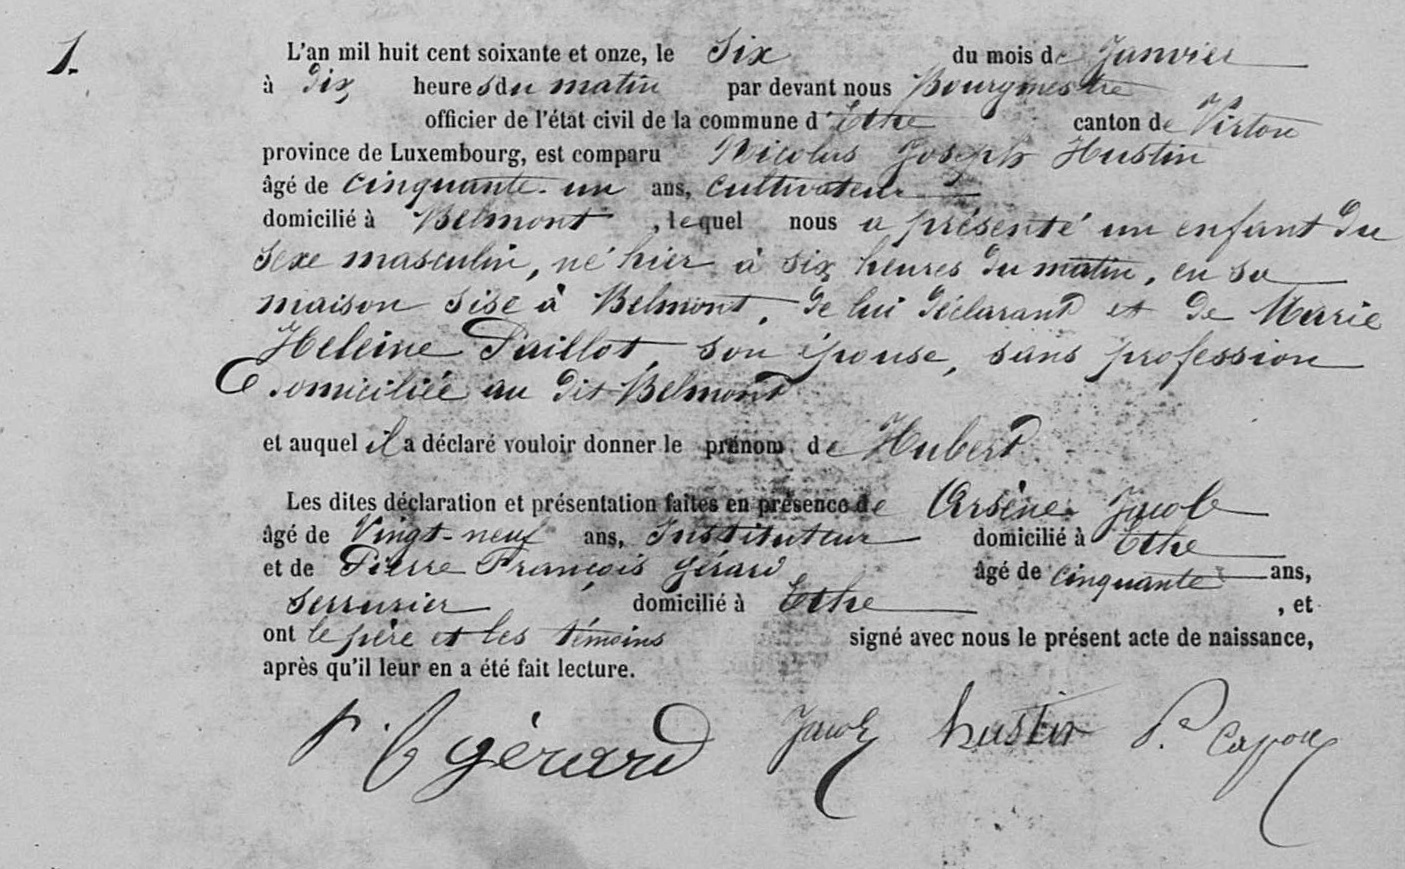 1.
L'an mil huit cent soixante et onze, le Six du mois de Janvier
à Dix heures du matin par devant nous Bourgmestre
officier de l'état civil de la commune d'Ethe canton de Virton
province de Luxembourg, est comparu Nicolas Joseph Hustin
âgé de cinquante-un ans, cultivateur
domicilié à Belmont, lequel nous a présenté un enfant du
sexe masculin, né hier à six heures du matin, en sa
maison sise à Belmont, de lui déclarant et de Marie
Heleine Paillot, son épouse, sans profession
Domiciliée au dit Belmont
et auquel il a déclaré vouloir donner le prénom de Hubert
Les dites déclaration et présentation faites en présence de Arsène Jacob
âgé de Vingt-neuf ans, Instituteur domicilié à Ethe
et de Pierre François Gérard âgé de cinquante ans,
serrurier domicilié à Ethe, et
ont le père et les témoins signé avec nous le présent acte de naissance,
après qu'il leur en a été fait lecture.
P. f gérard Jacob hustin P.